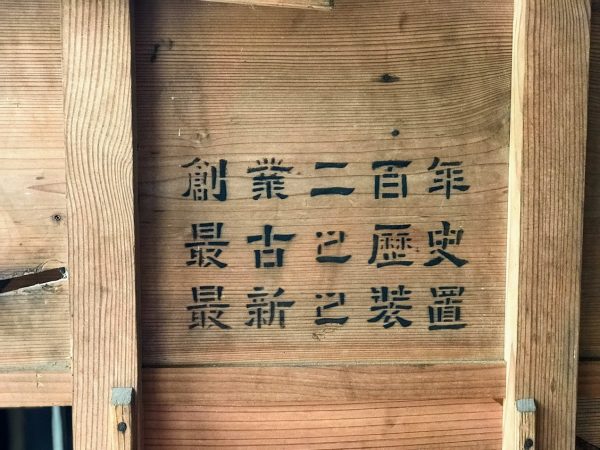 創業二百年
最古之歴史
最新之装置